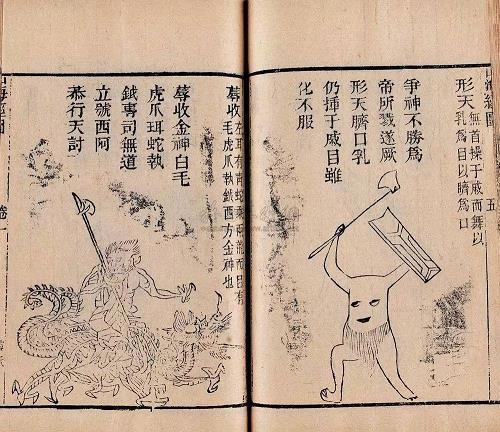 形天 無首操干戚而舞以
乳為目以臍為口
爭神不勝為
帝所戮遂厥
形天臍口乳
仍揮干戚目雖
化不服
五
蓐收 左耳有青蛇乘兩龍面目有
毛虎爪執鉞西方金神也
蓐收金神白毛
虎爪珥蛇執
鉞專司無道
立號西阿
恭行天討
卷一